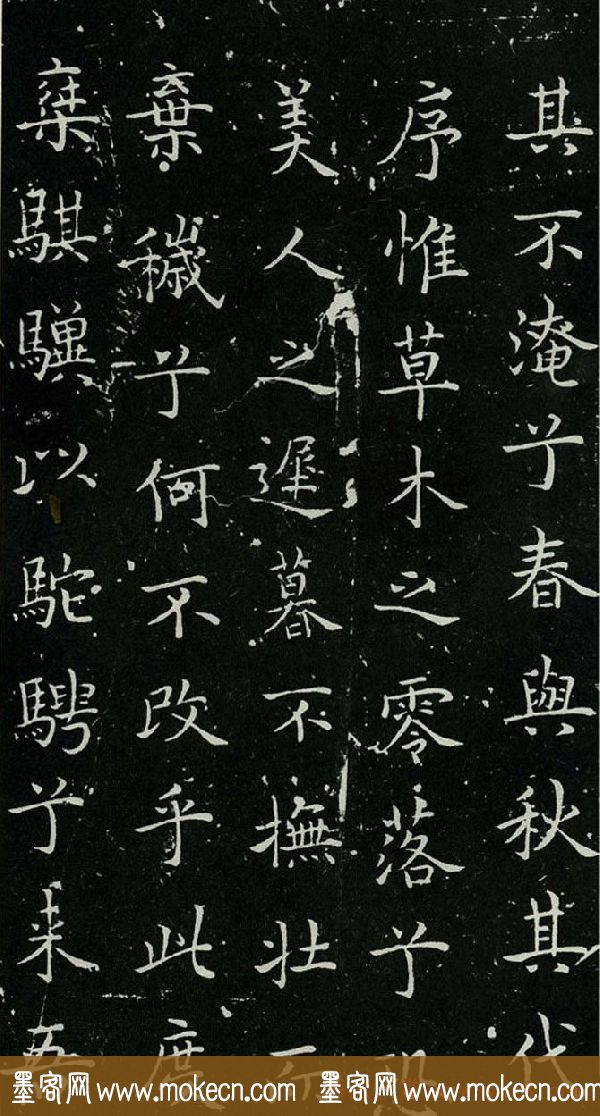 其不淹兮春與秋其代
序惟草木之零落兮恐
美人之遲暮不撫壯而
棄穢兮何不改乎此度
椉騏驥以駝騁兮来吾
墨客网 www.mokecn.com 墨客网 www.mokecn.com